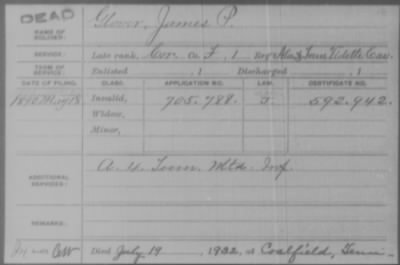 DEAD
NAME OF SOLDIER: Glover, James P.
SERVICE: Late rank, Cor. Co. F, 1 Reg't Ala & Tenn Vidette Cav.
TERM OF SERVICE: Enlisted , 1 Discharged , 1
DATE OF FILING. CLASS. APPLICATION NO. LAW. CERTIFICATE NO.
1890 Invalid, 705.788. J 592.942.
Widow,
Minor,
ADDITIONAL SERVICES: A. 4 Tenn. Mtd. Inf.
REMARKS:
Died July 19, 1932, at Coalfield, Tenn